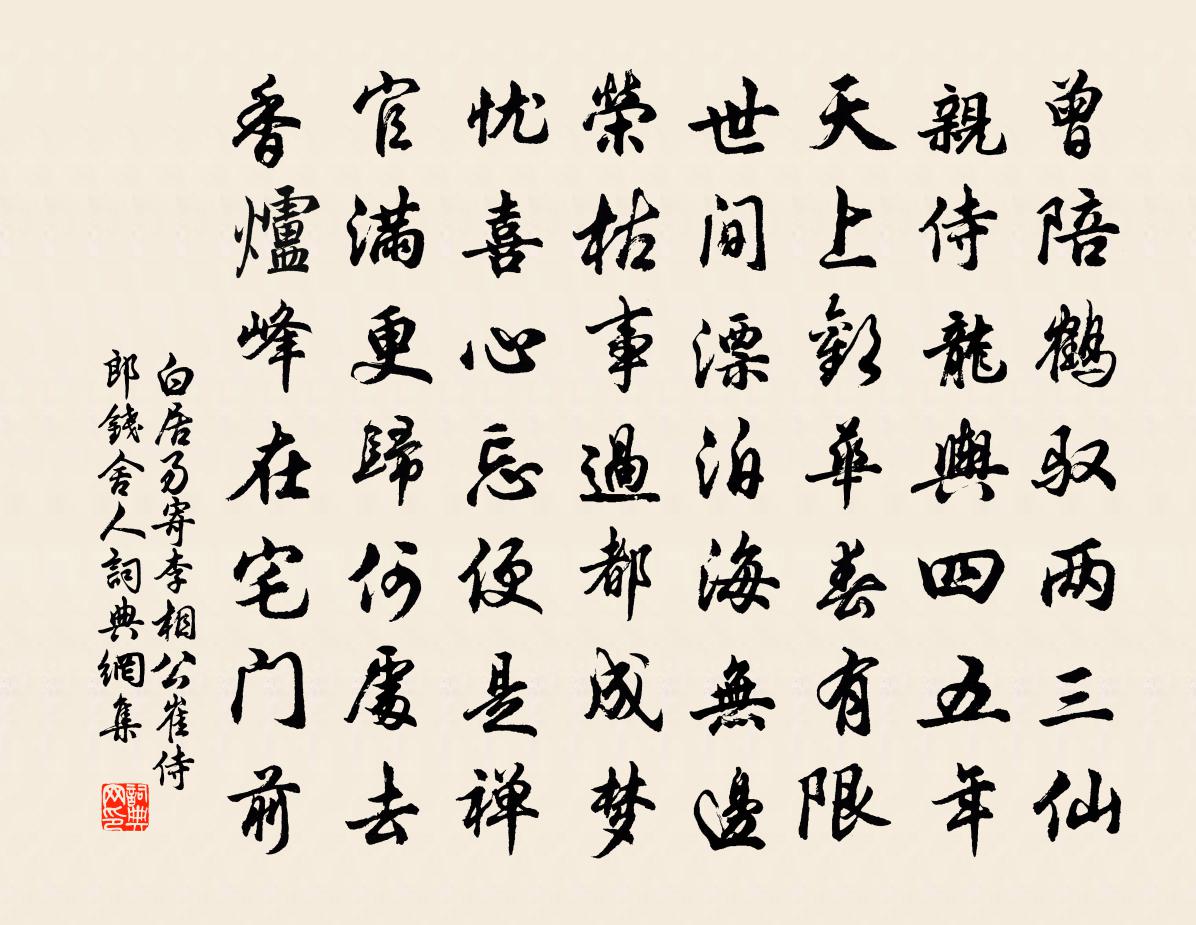 曾陪鶴驭两三仙
親侍龍輿四五年
天上歡華春有限
世间漂泊海無邊
榮枯事過都成梦
忧喜心忘便是禅
官滿更歸何處去
香爐峰在宅门前
白居易寄李相公崔侍
郎錢舍人詞典網集
詞典
网印